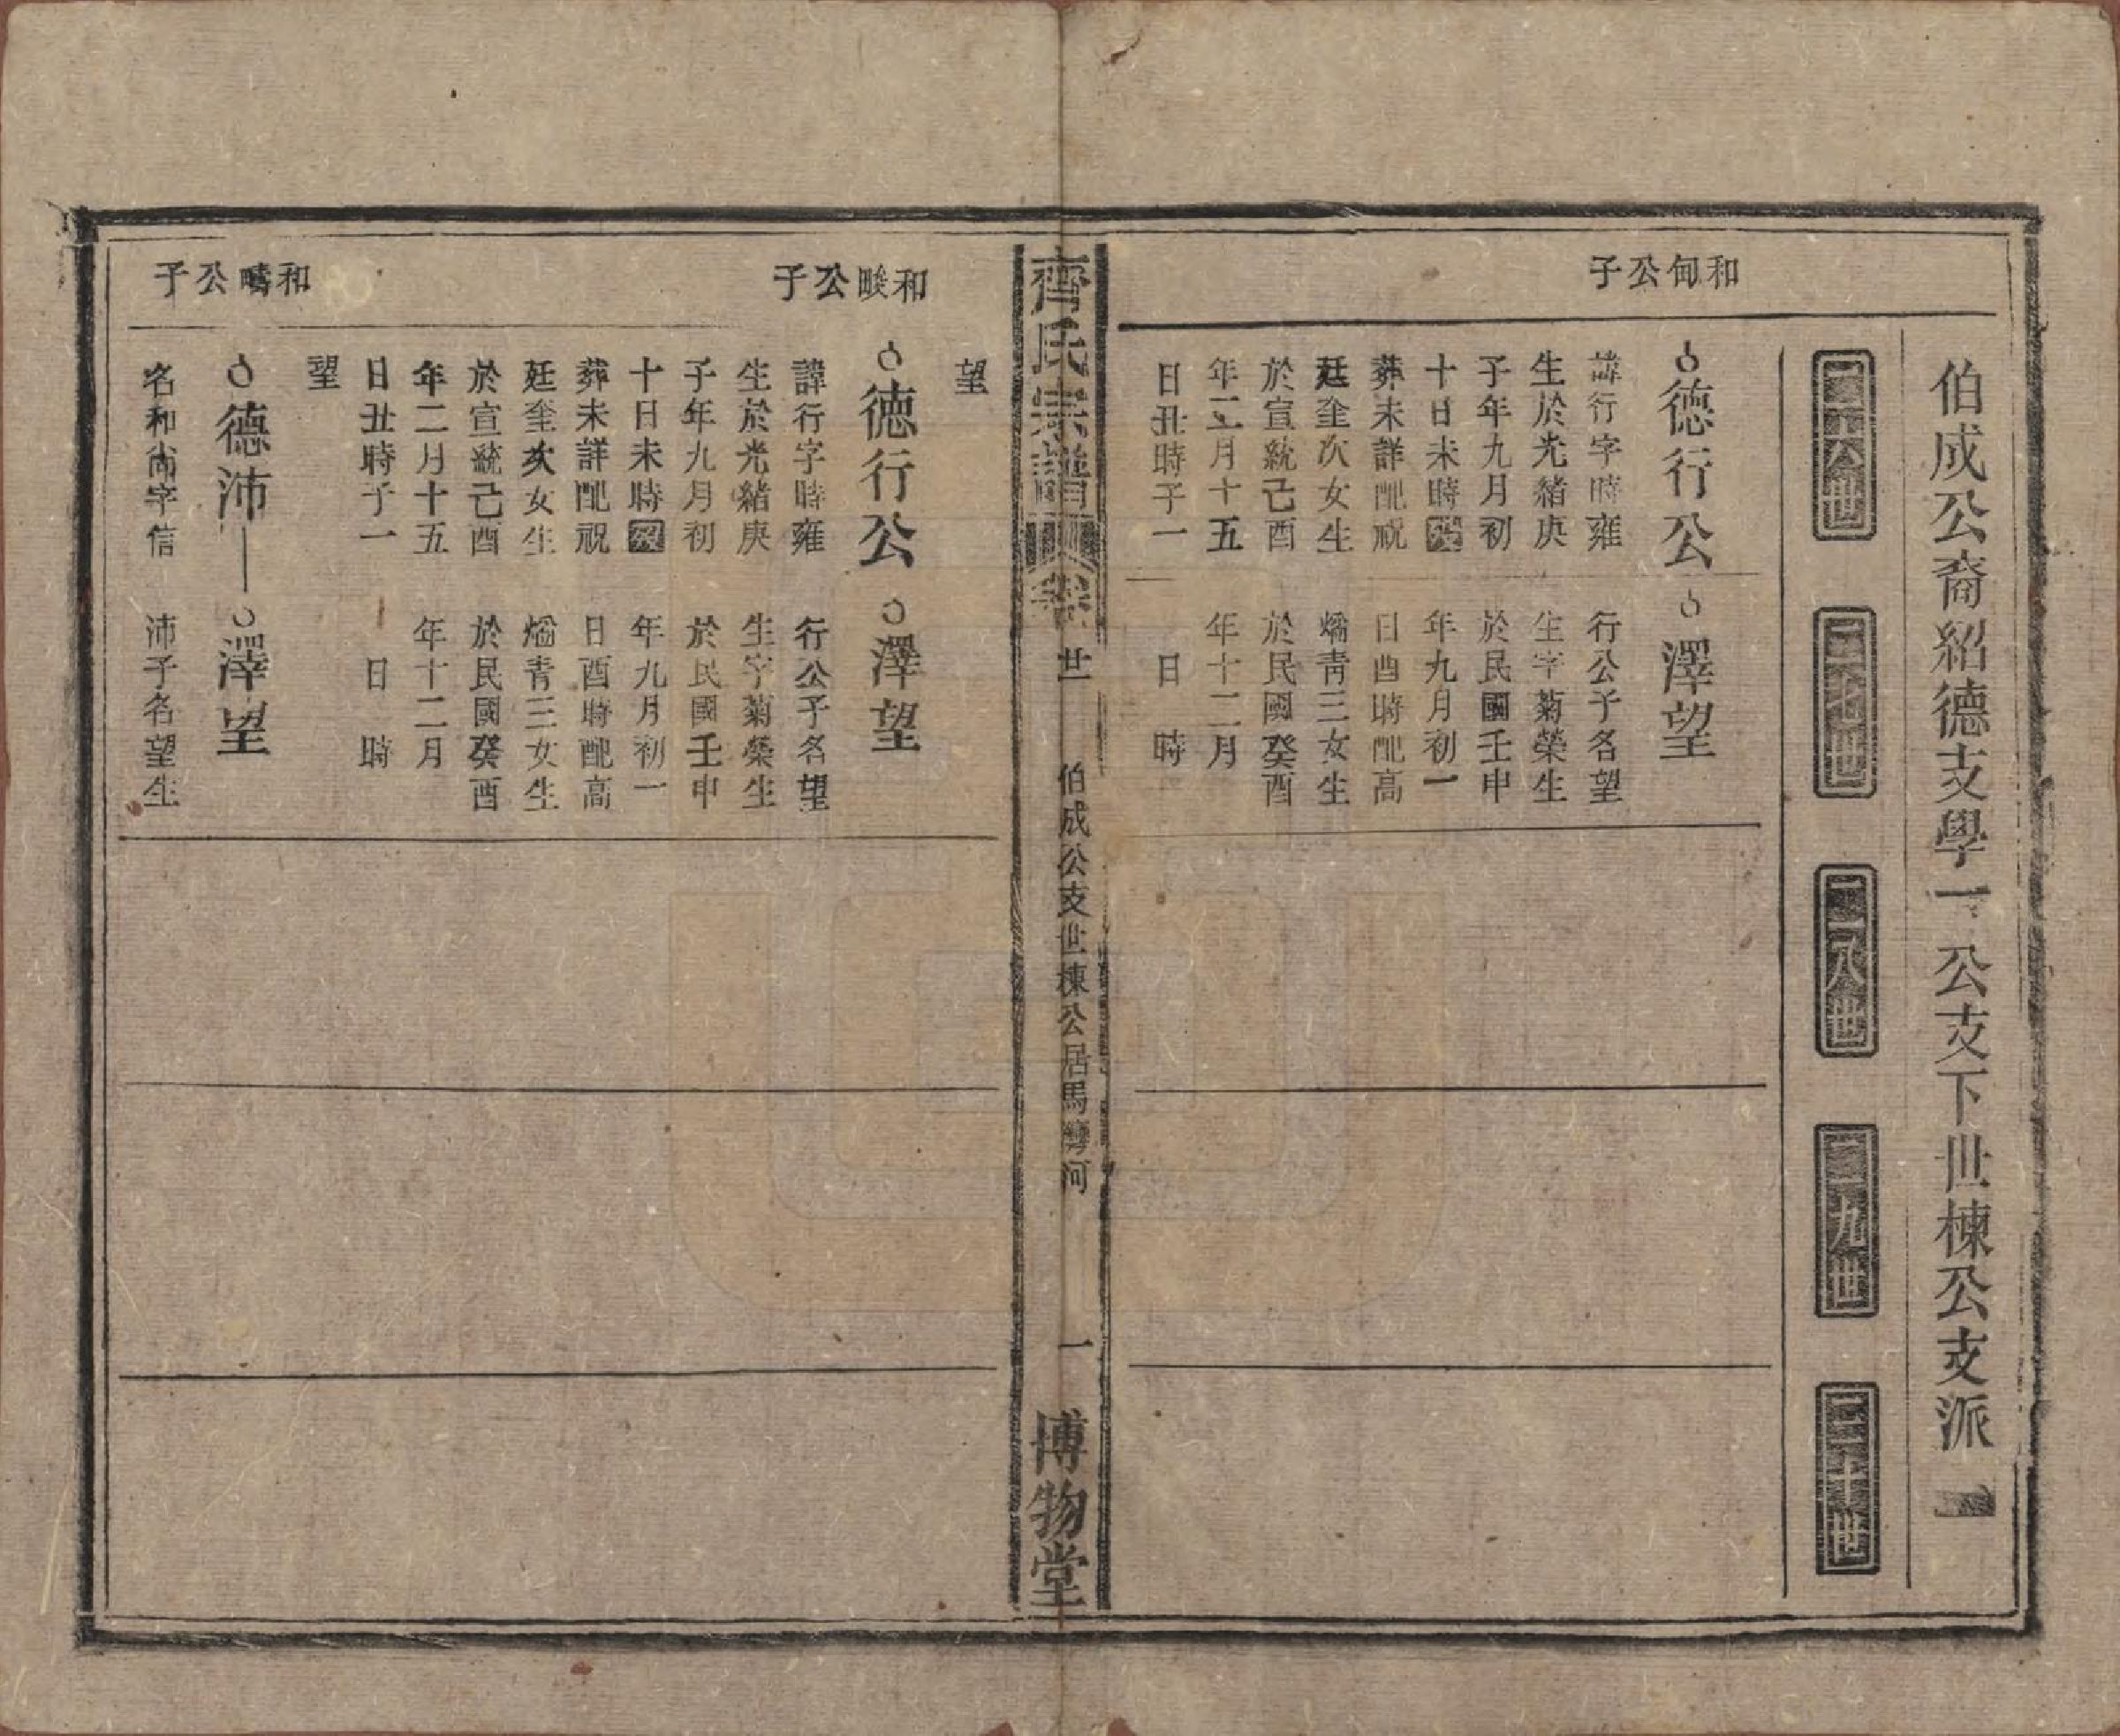 伯成公裔紹德支學一公支下世棟公支派 一
二六世
二七世
二八世
二九世
三十世
和甸公子
德行公
諱行字時雍
生於光緒庚
子年九月初
十日未時歿
葬未詳配祝
廷奎次女生
於宣統己酉
年二月十五
日丑時子一
澤望
行公子名望
生字菊榮生
於民國壬申
年九月初一
日酉時配高
燔青三女生
於民國癸酉
年十二月
日 時
齊氏宗譜
卷
世
伯成公支世棟公居馬灣河
一
博物堂
望
和畯公子
德行公
諱行字時雍
生於光緒庚
子年九月初
十日未時歿
葬未詳配祝
廷奎次女生
於宣統己酉
年二月十五
日丑時子一
望
澤望
行公子名望
生字菊榮生
於民國壬申
年九月初一
日酉時配高
燔青三女生
於民國癸酉
年十二月
日 時
和疇公子
德沛
名和尚字信
澤望
沛子名望生